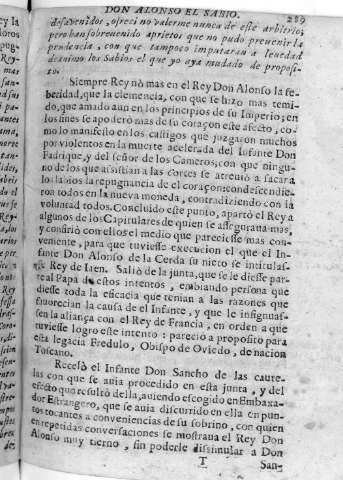 DON ALONSO EL SABIO. 289
desavenidos, ofreci no valerme nunca de este arbitrio;
pero han sobrevenido aprietos que no pudo prevenir la
prudencia, con que tampoco imputaran a leuedad
de animo los Sabios el que yo aya mudado de proposi-
to.
Siempre Reynò mas en el Rey Don Alonso la se-
beridad, que la clemencia, con que se hizo mas temi-
do, que amado aun en los principios de su Imperio; en
los fines se apoderò mas de su coraçon este afecto, co-
mo lo manifestò en los castigos que juzgaron muchos
por violentos en la muerte acelerada del Infante Don
Fadrique, y del señor de los Cameros; con que ningu-
no de los que assistian a las cortes se atreuiò a sacar a
los labios la repugnancia de el coraçon: condescendie-
ron todos en la nueva moneda, contradiziendo con la
voluntad todos. Concluido este punto, apartò el Rey a
algunos de los Capitulares de quien se assegurana mas,
y confiriò con ellos el medio que pareciesse mas con-
veniente, para que tuviesse execucion el que el In-
fante Don Alonso de la Cerda su nieto se intitulas-
se Rey de Iaen. Saliò de la junta, que se le diesse par-
te al Papa de estos intentos, embiando persona que
diesse toda la eficacia que tenian a las razones que
fauorecian la causa de el Infante, y que le insignuas-
sen la aliança con el Rey de Francia, en orden a que
tuviesse logro este intento: pareciò a proposito para
esta legacia Fredulo, Obispo de Oviedo, de nacion
Toscano.
Recelò el Infante Don Sancho de las caute-
las con que se auia procedido en esta junta, y del
efecto que resultò della, auiendo escogido en Embaxa-
dor Estrangero, que se auia discurrido en ella en pun-
tos tocantes a conveniencias de su sobrino, con quien
en repetidas conversaciones se mostraua el Rey Don
Alonso muy tierno, sin poderle dissimular a Don
T San-